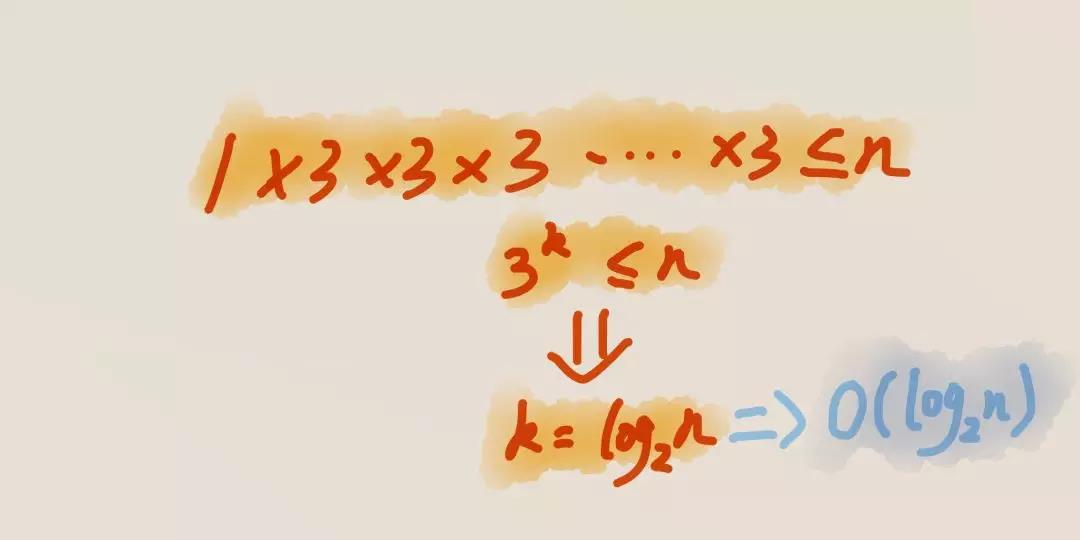 1 × 3 × 3 × 3 ····· × 3 ≤ n
3^k ≤ n
⇓
k = log₂n => O(log₂n)